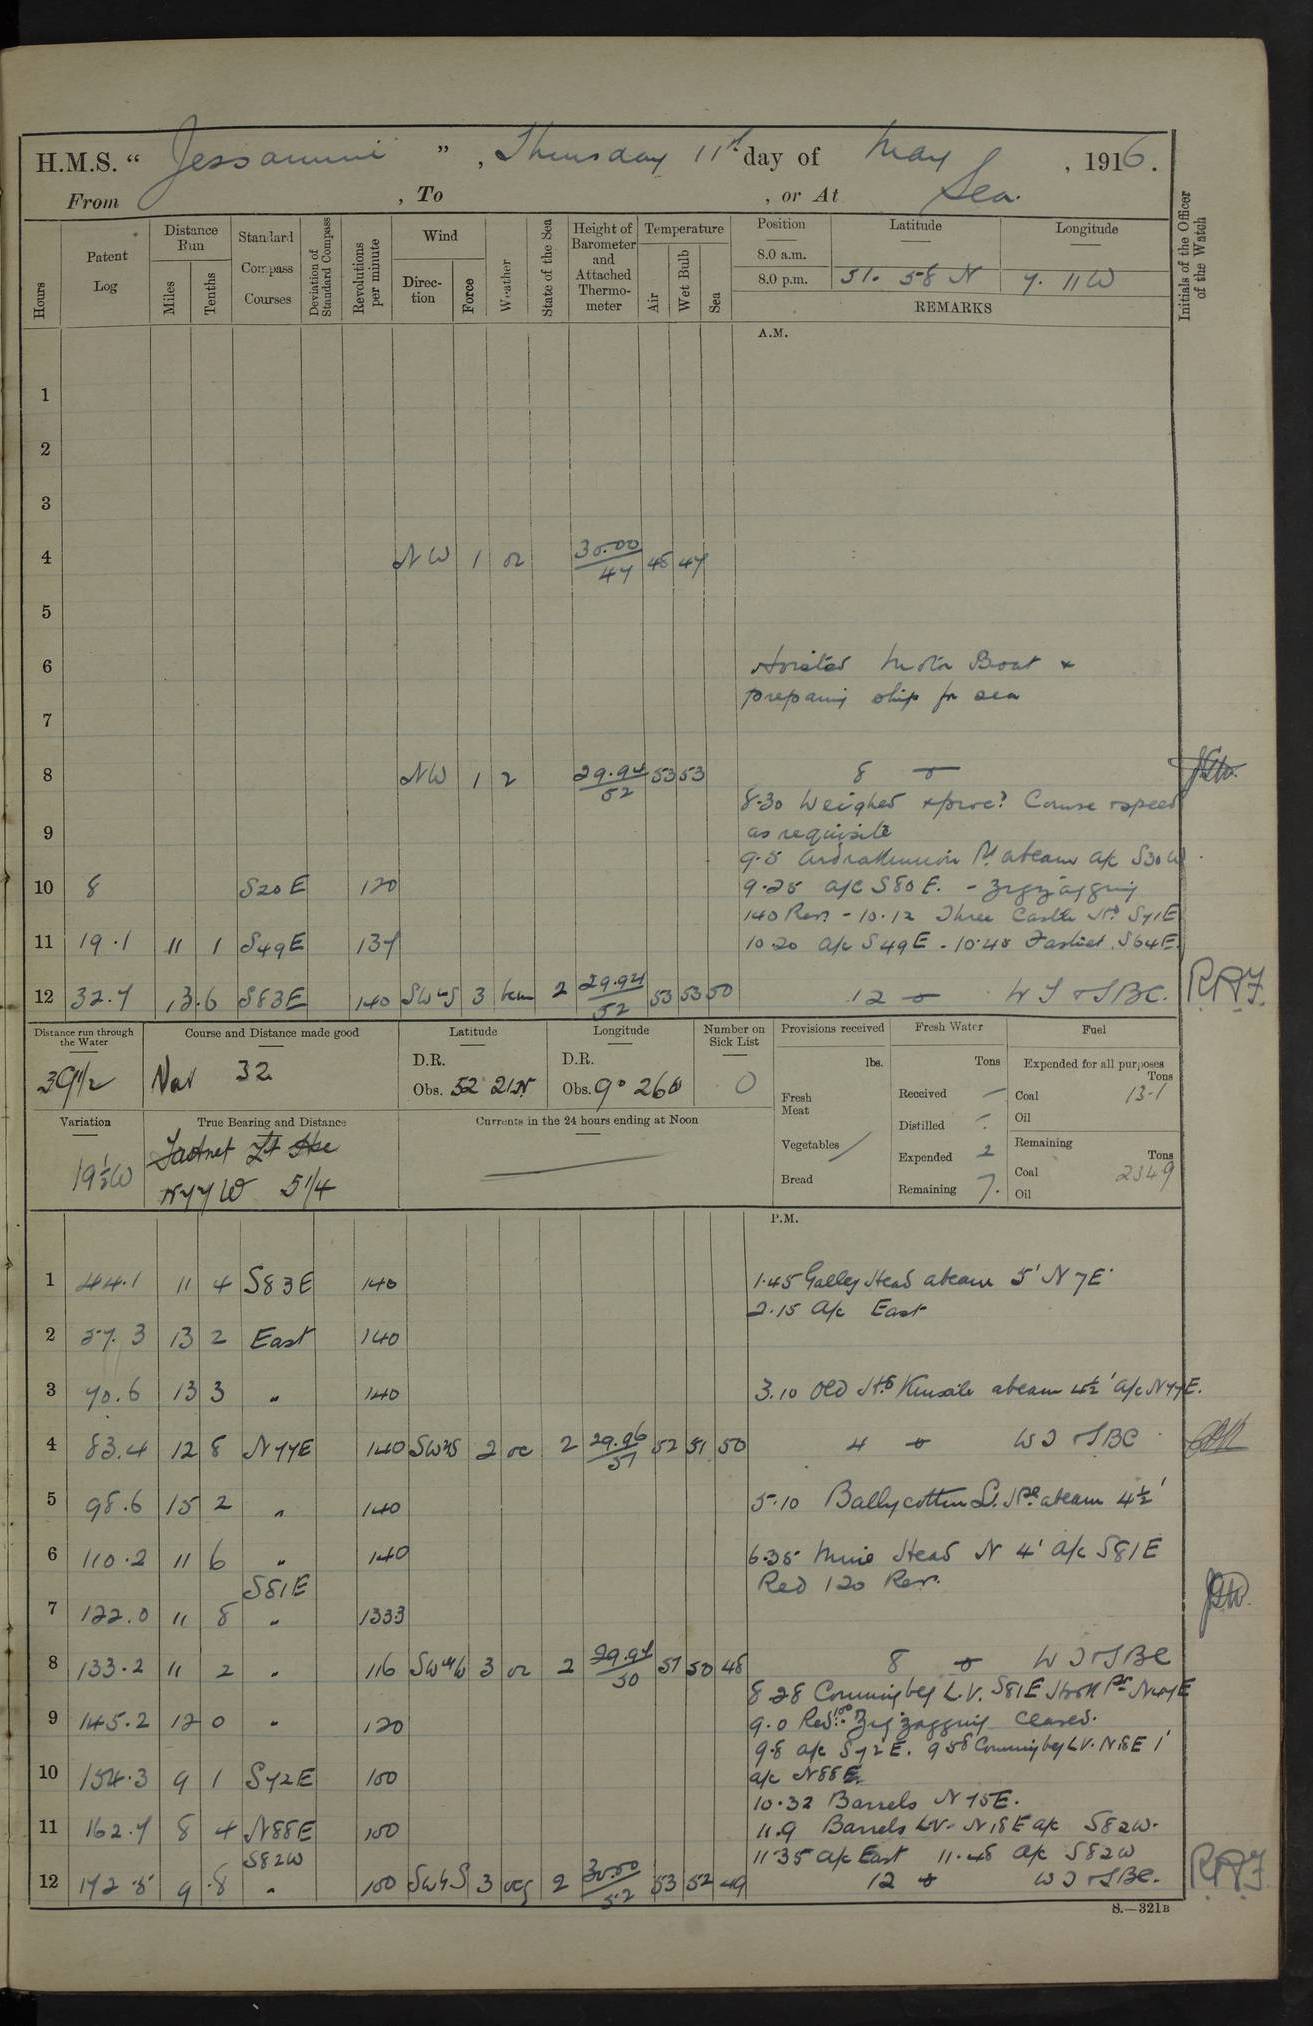 H.M.S. “ Jessamine ” , Thursday 11th day of May , 1916.
From , To , or At Sea.
Hours
Patent Log
Distance Run
Miles
Tenths
Standard Compass Courses
Deviation of Standard Compass
Revolutions per minute
Wind
Direction
Force
Weather
State of the Sea
Height of Barometer and Attached Thermometer
Temperature
Air
Wet Bulb
Sea
Position Latitude Longitude
8.0 a.m.
8.0 p.m. 51. 58 N 7. 11 W
REMARKS
Initials of the Officer of the Watch
A.M.
1
2
3
4 NW 1 or 30.00/47 48 47
5
6 Hoisted Motor Boat &
preparing ship for sea
7
8 NW 1 2 29.94/52 53 53 8
8.30 Weighed & proc? Course & speed
9 as requisite
9.5 abeam a/c S30W
10 8 S20E 120 9.25 a/c S80E. - Zigzagging
140 Rev. - 10.12 Three Castle Hd S71E
11 19.1 11 1 S49E 137 10.20 a/c S49E - 10.48 Fastnet. S64E.
12 32.7 13.6 S83E 140 SWxS 3 bcm 2 29.94/52 53 53 50 12 W T & SBC. R.A.F.
Distance run through the Water
39 1/2
Course and Distance made good
Var 32
Latitude
D.R.
Obs. 52 21 N
Longitude
D.R.
Obs. 9° 26 W
Number on Sick List
0
Provisions received
lbs.
Fresh Meat
Vegetables
Bread
Fresh Water
Tons
Received –
Distilled –
Expended 2
Remaining 7.
Fuel
Expended for all purposes
Tons
Coal 13.1
Oil
Remaining
Tons
Coal 2349
Oil
Variation
19½ W
True Bearing and Distance
Fastnet Lt Hse
N77W 5 1/4
Currents in the 24 hours ending at Noon
P.M.
1 44.1 11 4 S83E 140 1.45 Galley Head abeam 5' N7E
2.15 a/c East
2 57.3 13 2 East 140
3 70.6 13 3 " 140 3.10 Old Hd Kinsale abeam 4½' a/c N77E.
4 83.4 12 8 N77E 140 SWxS 2 oc 2 29.96/51 52 51 50 4 W T & SBC
5 98.6 15 2 " 140 5.10 Ballycotton Lt. Hse abeam 4½'
6 110.2 11 6 " 140 6.35 Mine Head N 4' a/c S81E
S81E Red 120 Rev.
7 122.0 11 8 " 133.3
8 133.2 11 2 " 116 SWxW 3 or 2 29.94/50 51 50 48 8 W T & SBC
8.28 Conningbeg L.V. S81E Hook Pt N47E
9 145.2 12 0 " 120 9.0 Red 100. Zig zagging ceased.
9.8 a/c S72E. 9.58 Conningbeg L.V. N18E 1'
10 154.3 9 1 S72E 100 a/c N88E
10.32 Barrels N75E.
11 162.7 8 4 N88E 100 11.9 Barrels L.V. N18E a/c S82W.
S82W 11.35 a/c East 11.48 a/c S82W
12 172.5 9 .8 " 100 SWxS 3 ocg 2 30.00/52 53 52 49 12 W T & SBC. R.A.F.
S.—321B